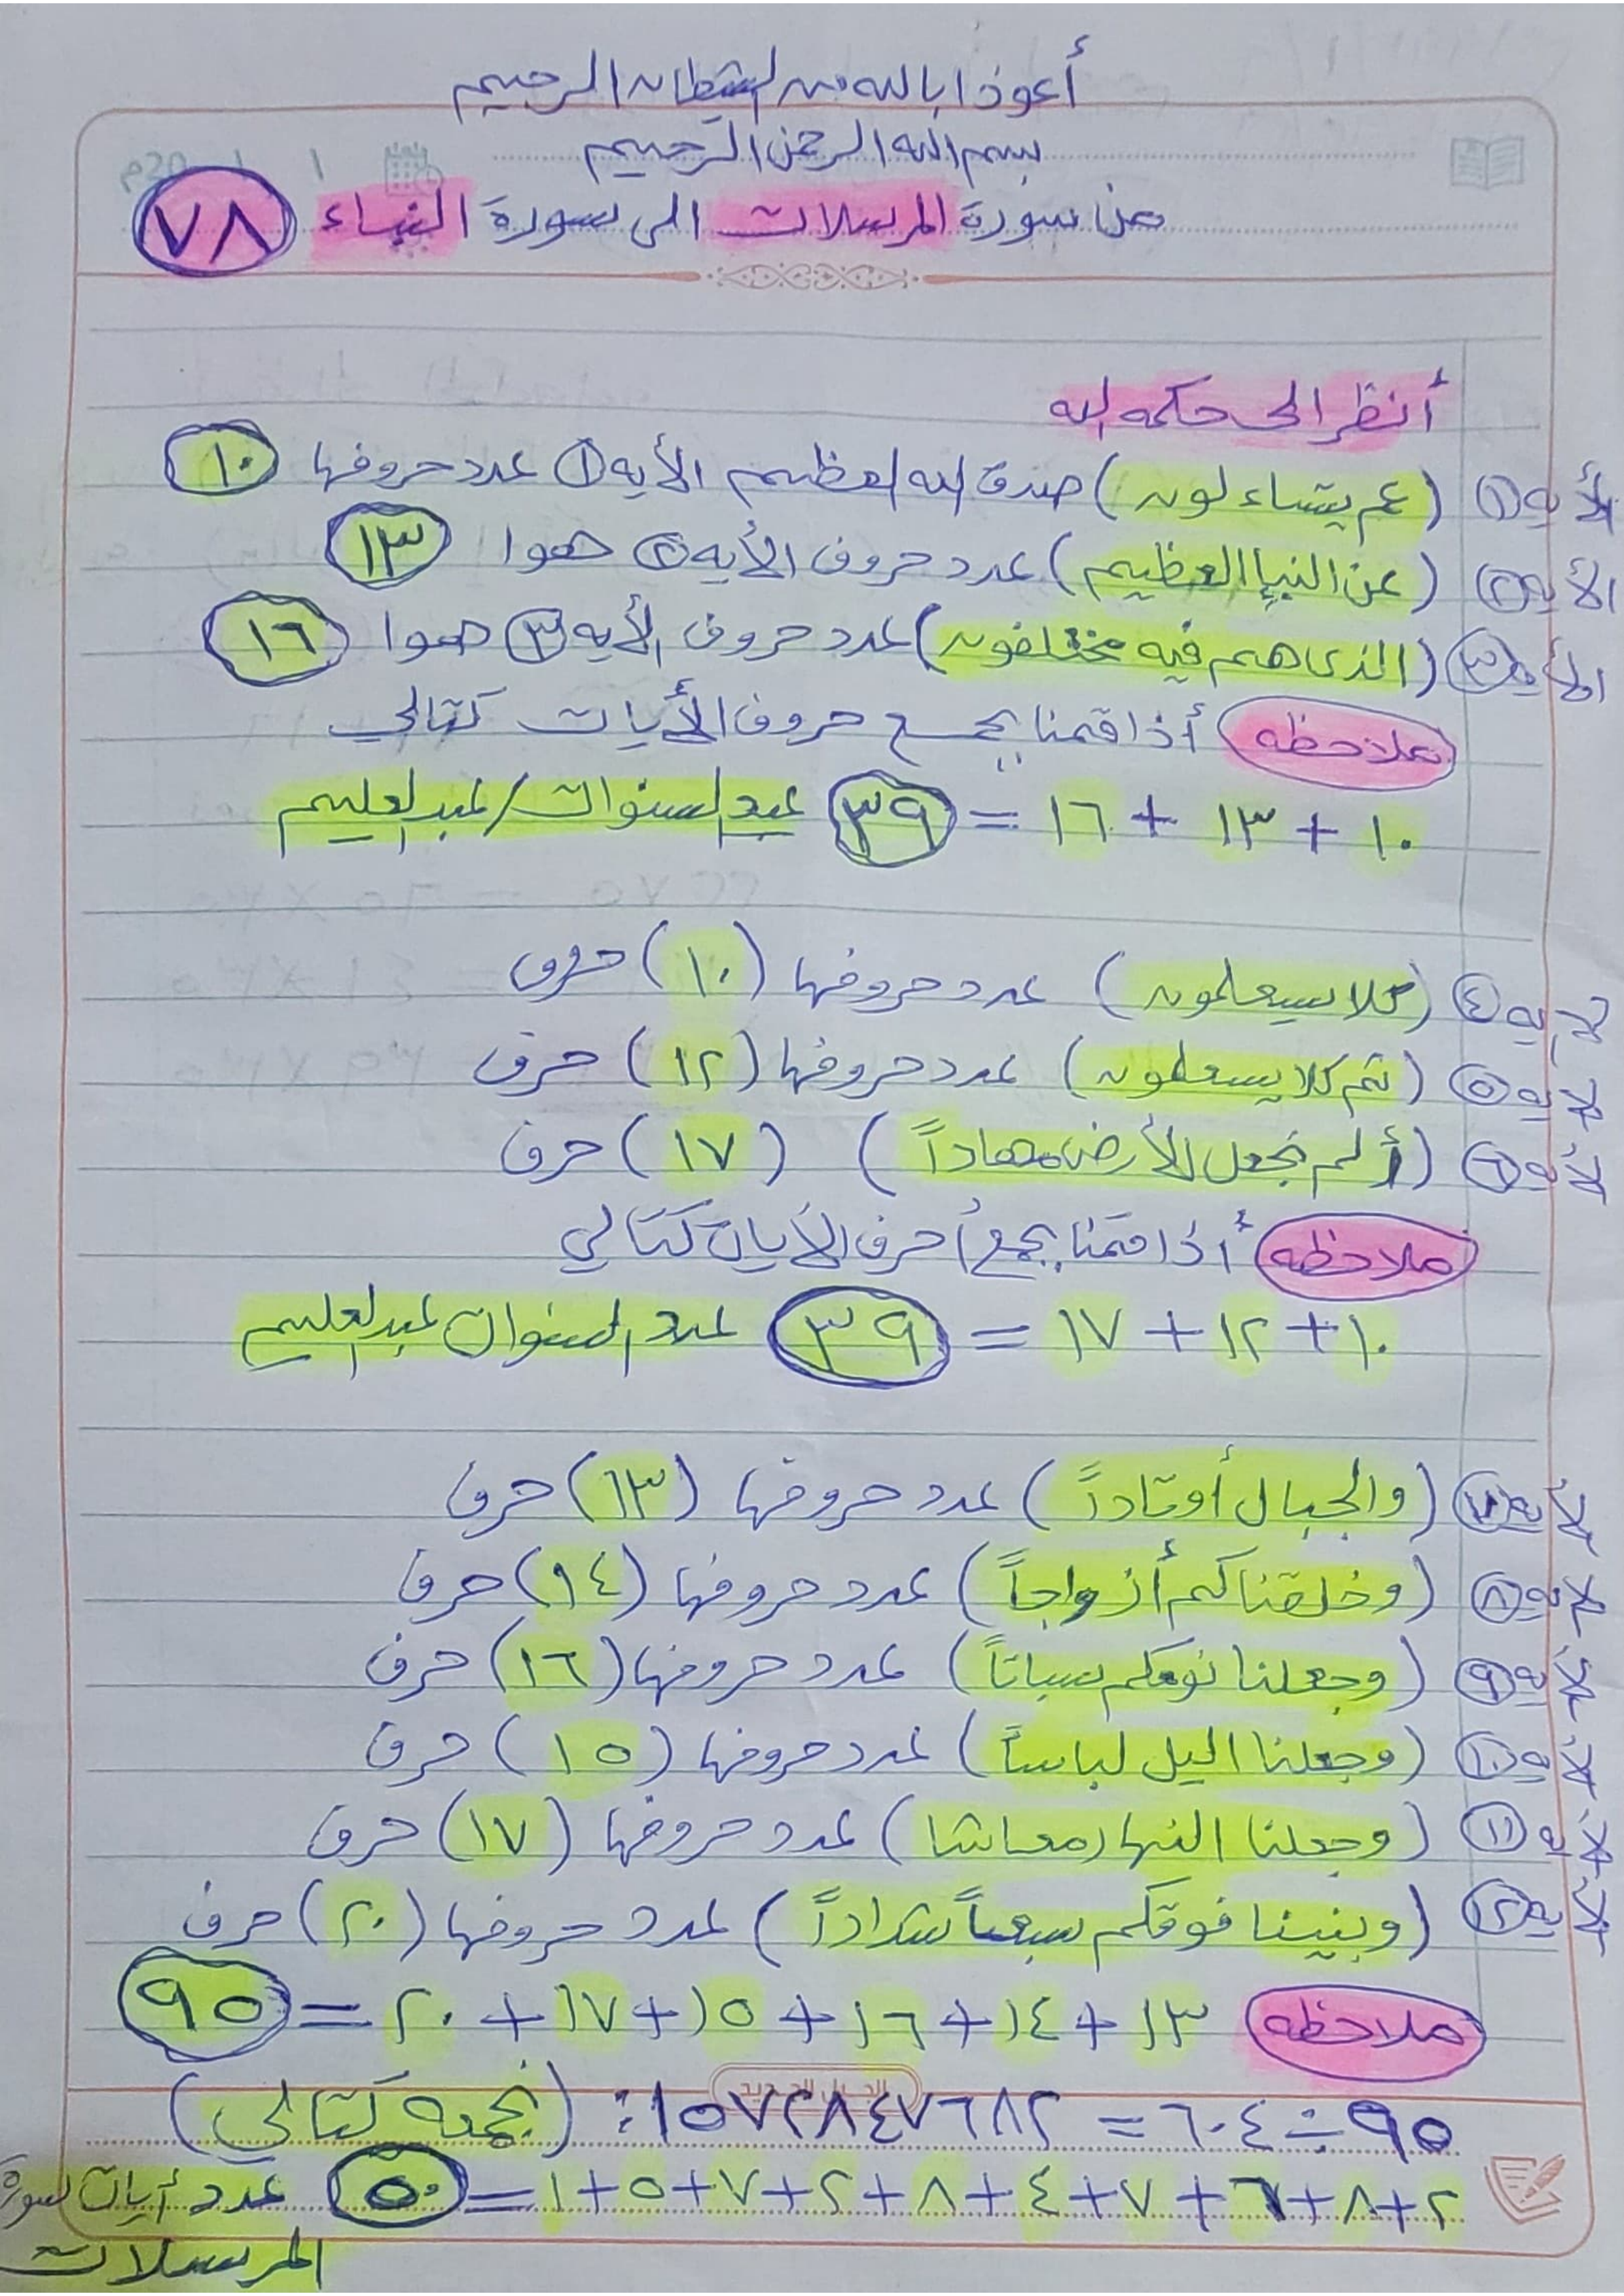 أعوذ ا بالله من الشيطان الرحيم
بسم الله الرحمن الرحيم
من سورة المرسلات الى سورة النباء ٧٨
أنظر الى حكمه الله
الأيه ١ (عم يتساءلون) صدق الله العظيم الأيه ١ عدد حروفها ١٠
الأيه ٢ (عن النبإ العظيم) عدد حروف الأيه ٢ هوا ١٣
الأيه ٣ (الذى هم فيه مختلفون) عدد حروف الأيه ٣ هوا ١٦
ملاحظه أذا قمنا بجمع حروف الأيات كتالي
١٠ + ١٣ + ١٦ = ٣٩ عبد السنوات / عبد العليم
لأيه ٤ (كلا سيعلمون) عدد حروفها (١٠) حروف
لأيه ٥ (ثم كلا سيعلمون) عدد حروفها (١٢) حرف
لأيه ٦ (ألم نجعل الأرض مهاداً) (١٧) حرف
ملاحظه أذا قمنا بجمع حرف الأيات كتالي
١٠ + ١٢ + ١٧ = ٣٩ عدد السنوات عبد العليم
لأيه ٧ (والجبال أوتاداً) عدد حروفها (١٣) حرف
لأيه ٨ (وخلقناكم أزواجاً) عدد حروفها (١٤) حرف
لأيه ٩ (وجعلنا نومكم سباتاً) عدد حروفها (١٦) حرف
لأيه ١٠ (وجعلنا اليل لباساً) عدد حروفها (١٥) حرف
لأيه ١١ (وجعلنا النهار معاشا) عدد حروفها (١٧) حرف
الأيه ١٢ (وبنينا فوقكم سبعاً شداداً) عدد حروفها (٢٠) حرف
ملاحظه ١٣ + ١٤ + ١٦ + ١٥ + ١٧ + ٢٠ = ٩٥
٩٥ ÷ ٦٠٤ = ١٥٧٢٨٤٧٦٨٢: (نجمعه كتالي)
٢+٨+٦+٧+٤+٨+٢+٧+٥+١ = ٥٠ عدد أيات سورة
المرسلات